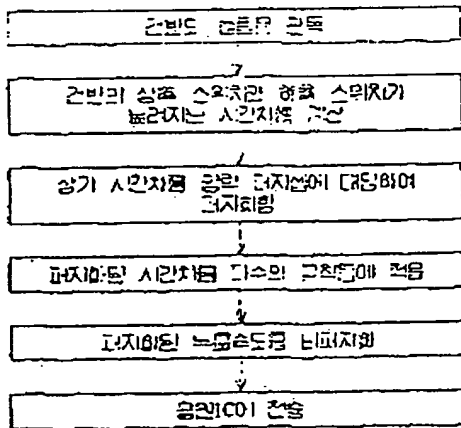 건반의 상측 스위치와 하측 스위치가
눌러지는 시간차를 계산
상기 시간차를 입력 퍼지셋에 대응하여
퍼지화함
퍼지화된 시간차를 다수의 규칙들에 적용
퍼지화된 누름속도를 비퍼지화
음원IC에 전송